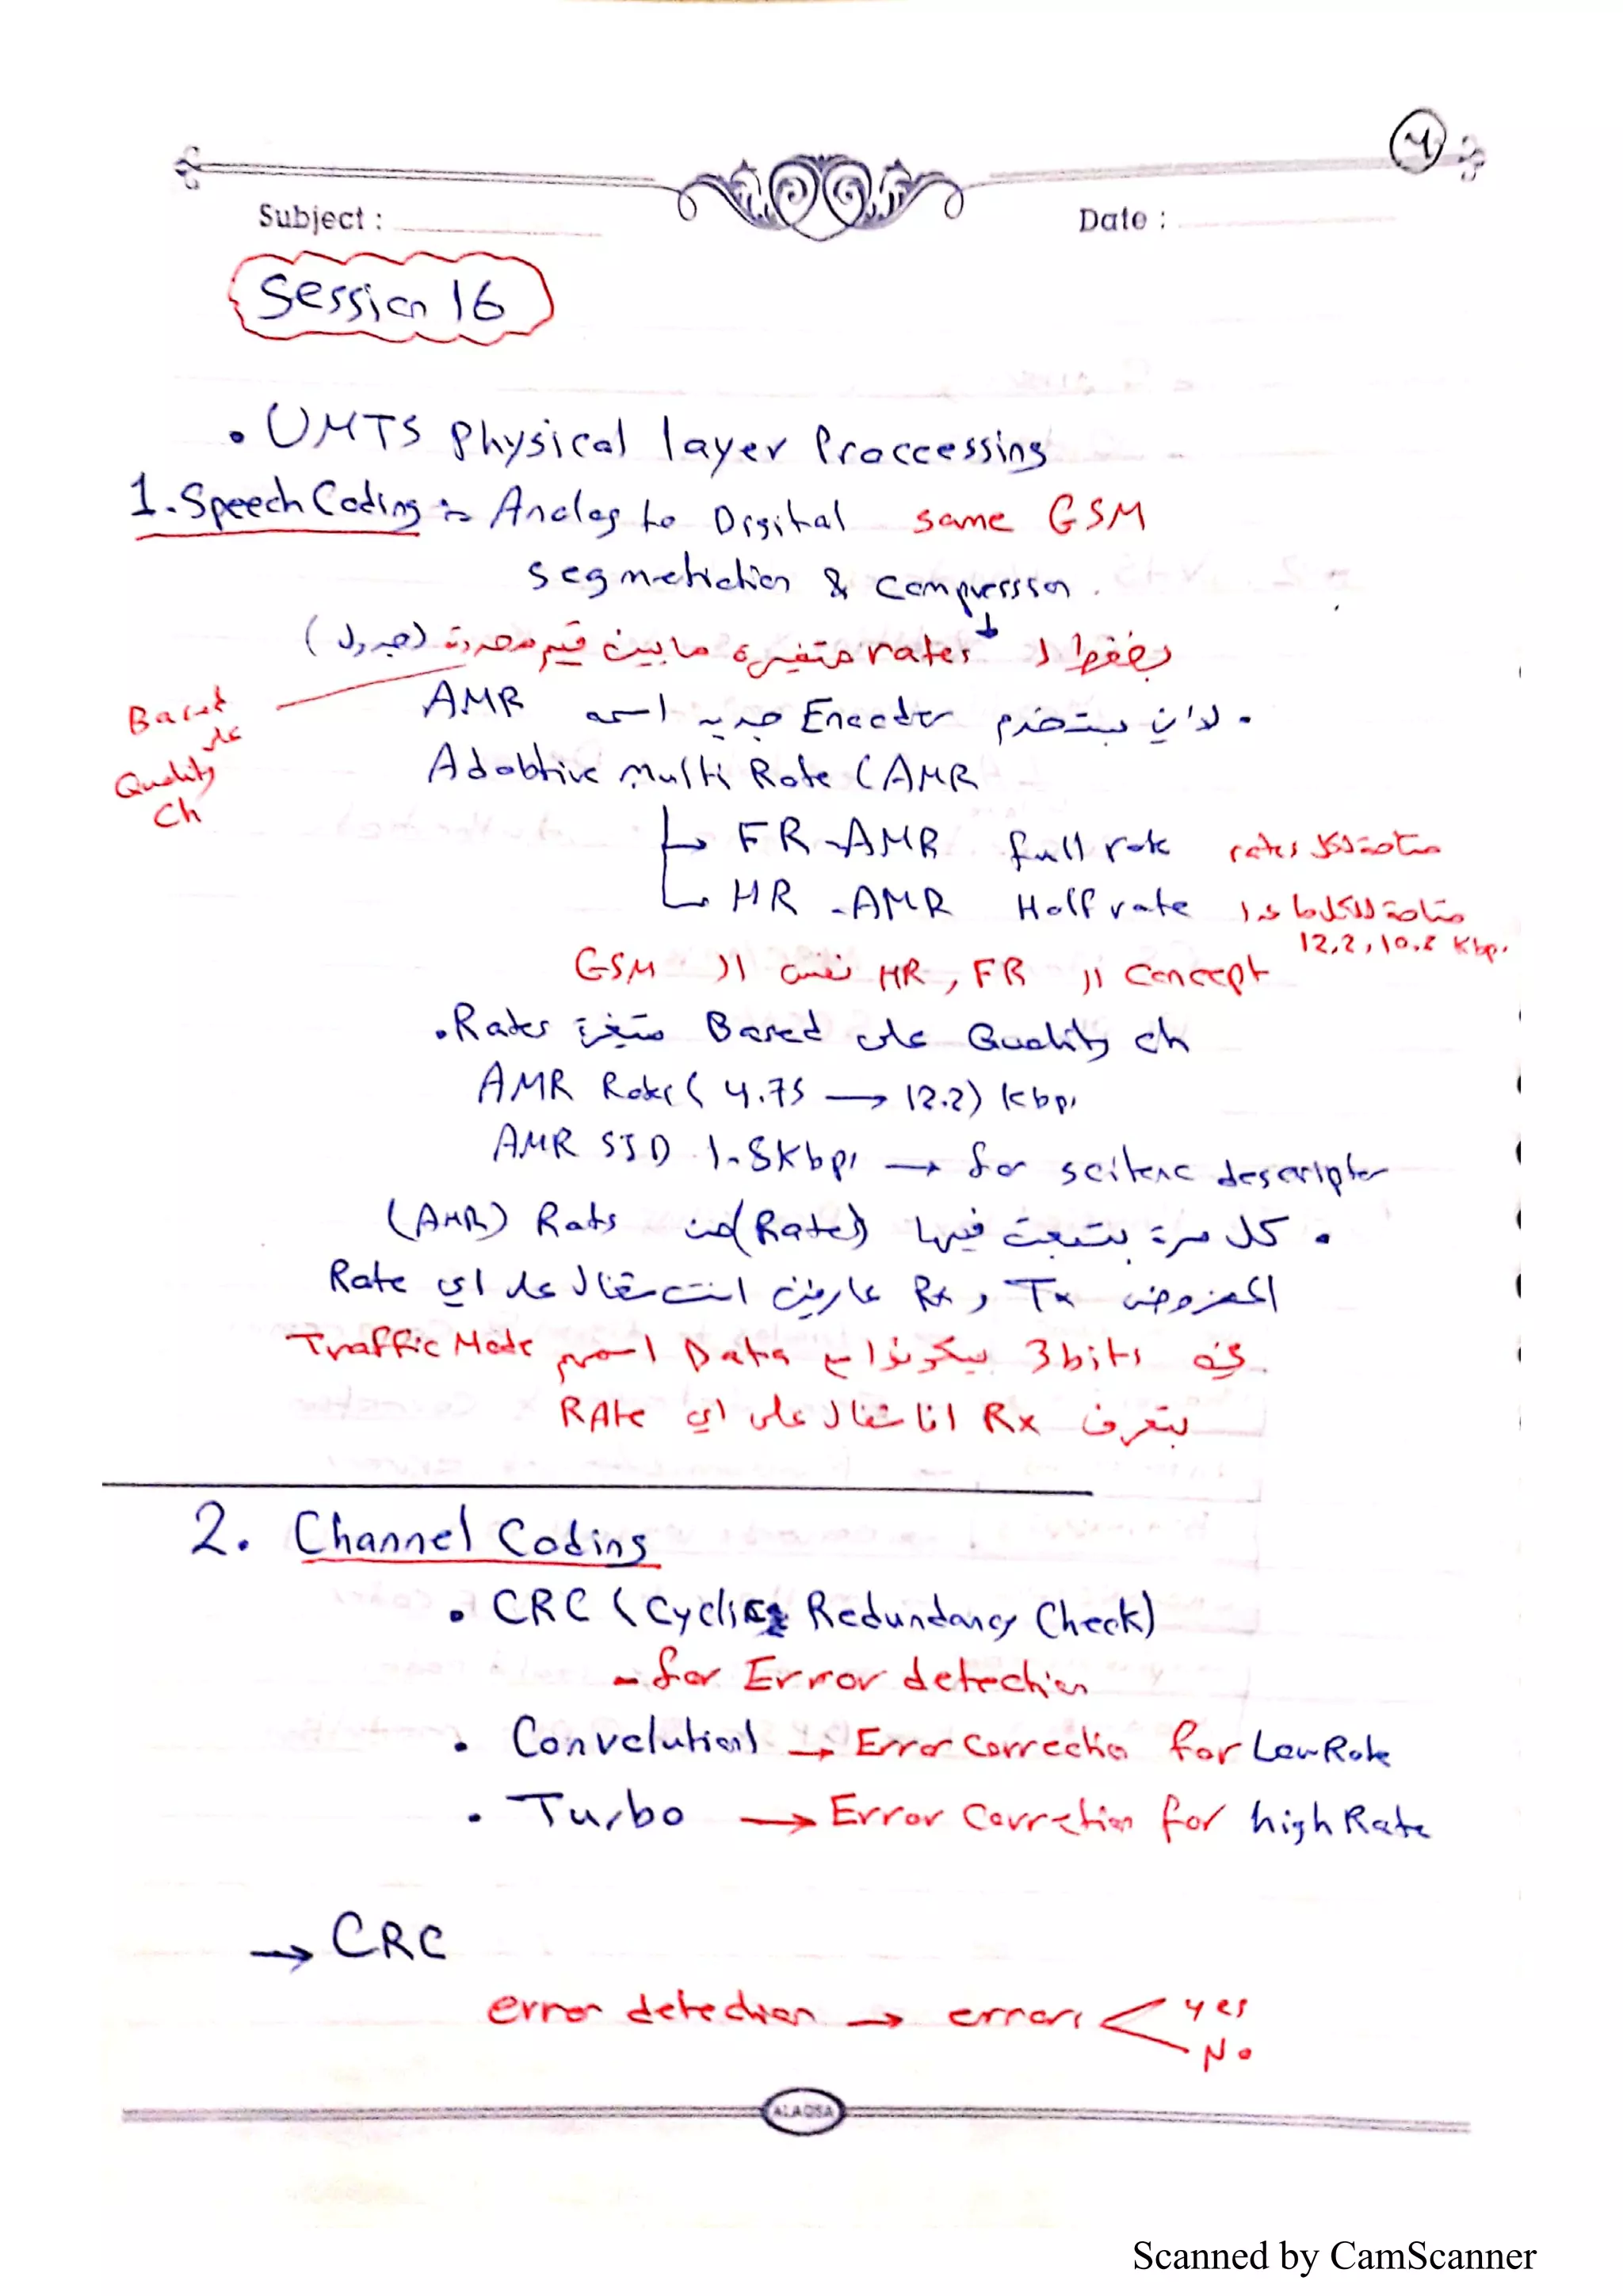 4
Subject :
Date :
Session 16
• UMTS Physical layer Proccessing
1. Speech Coding :- Analog to Digital same GSM
segmetiction & Compression.
بضغط لـ rates متغيره ما بين قيم محددة (جدول)
Based
على
Quality
Ch
• لان بستخدم Encoder جديد اسمه AMR
Adabtive Multi Rate (AMR
FR-AMR full rate متاحة لكل rates
HR-AMR Half rate متاحة للكل ما عدا
12.2, 10.2 Kbps
Concept الـ HR, FR نفس الـ GSM
• Rates متغيرة Based على Quality ch
AMR Rates (4.75 → 12.2) kbps
AMR SID 1.8Kbps → for scilenc descripter
• كل مرة بتبعت فيها (Rates) من Rats (AMR)
المفروض Tx و Rx عارفين انت شغال على اي Rate
في 3 bits بيكونوا مع Data اسمهم Traffic Mode
بتعرف Rx انا شغال على اي RAte
2. Channel Coding
• CRC (Cyclic Redundancy Check)
- for Error detection
• Convolutional → Error Correction for Low Rate
• Turbo → Error Correction for high Rate
→ CRC
error detection → errors < yes
No
ALAQSA
Scanned by CamScanner